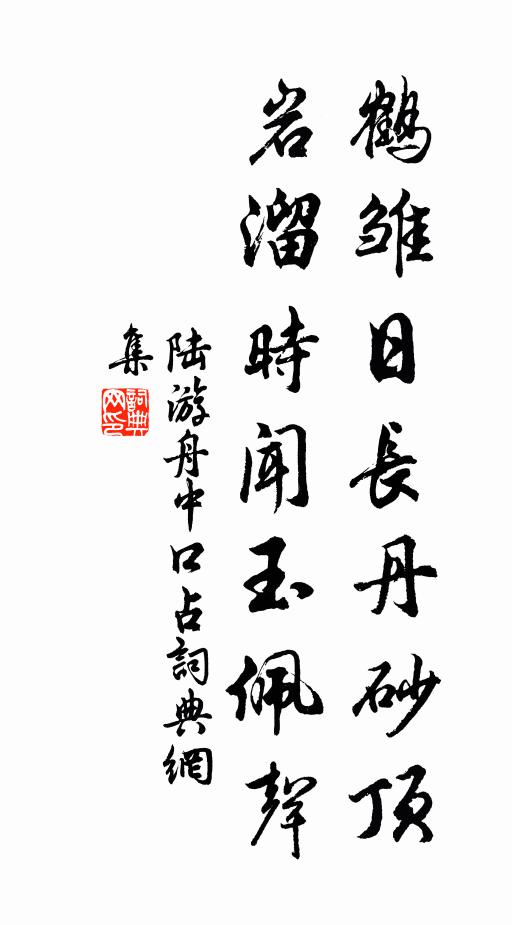 鶴雛日長丹砂頂
岩溜時聞玉佩聲
陆游舟中口占詞典網
集
詞典
网印